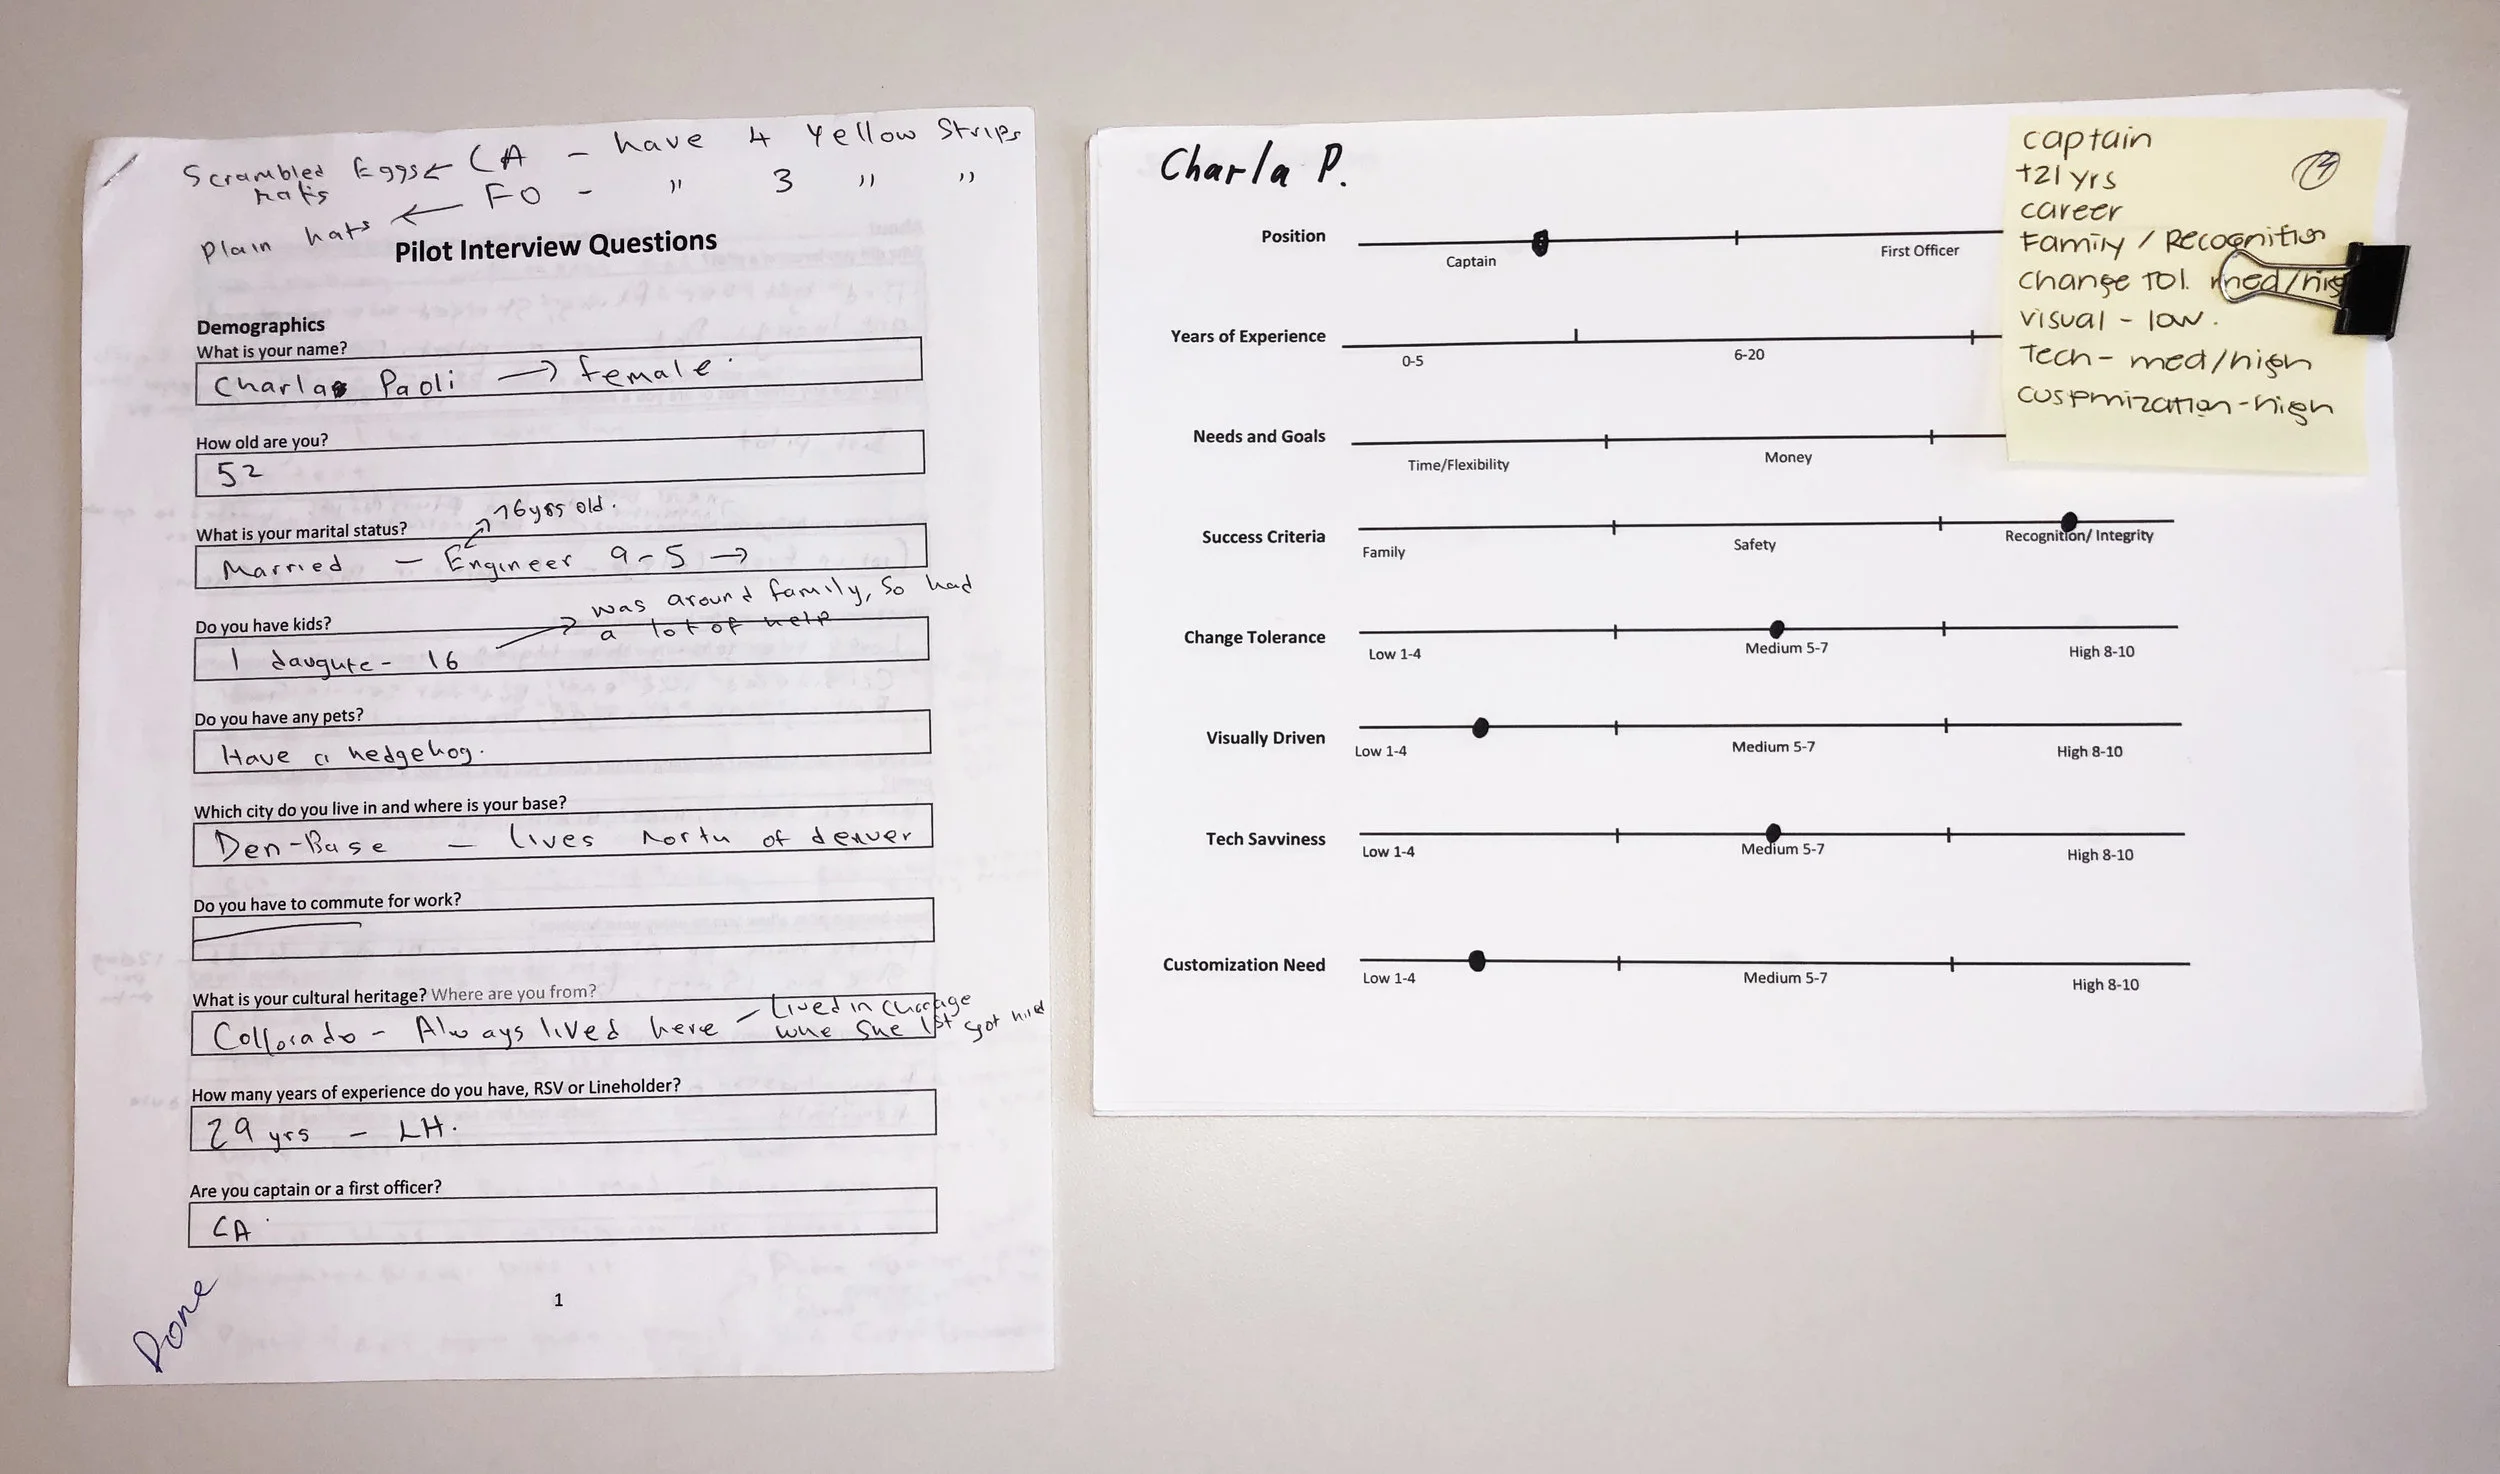 Scrambled Eggs ← CA - have 4 Yellow Strips
hats
FO - " 3 " "
Plain hats ←
Pilot Interview Questions
Demographics
What is your name?
Charla Paoli → female.
How old are you?
52
76yrs old.
What is your marital status?
Married - Engineer 9-5 →
was around family, So had
a lot of help
Do you have kids?
1 daugute - 16
Do you have any pets?
Have a hedgehog.
Which city do you live in and where is your base?
Den-Base - lives north of denver
Do you have to commute for work?
What is your cultural heritage? Where are you from?
Lived in
Collorado - Always lived here - whe She 1st got hired
How many years of experience do you have, RSV or Lineholder?
29 yrs - LH.
Are you captain or a first officer?
CA
1
Done
Charla P.
Position
Captain
First Officer
Years of Experience
0-5
6-20
Needs and Goals
Time/Flexibility
Money
Success Criteria
Family
Safety
Recognition/ Integrity
Change Tolerance
Low 1-4
Medium 5-7
High 8-10
Visually Driven
Low 1-4
Medium 5-7
High 8-10
Tech Savviness
Low 1-4
Medium 5-7
High 8-10
Customization Need
Low 1-4
Medium 5-7
High 8-10
captain
+21 yrs
career
Family / Recognition
Change Tol. med/hig
visual - low.
Tech - med/high
customization - high